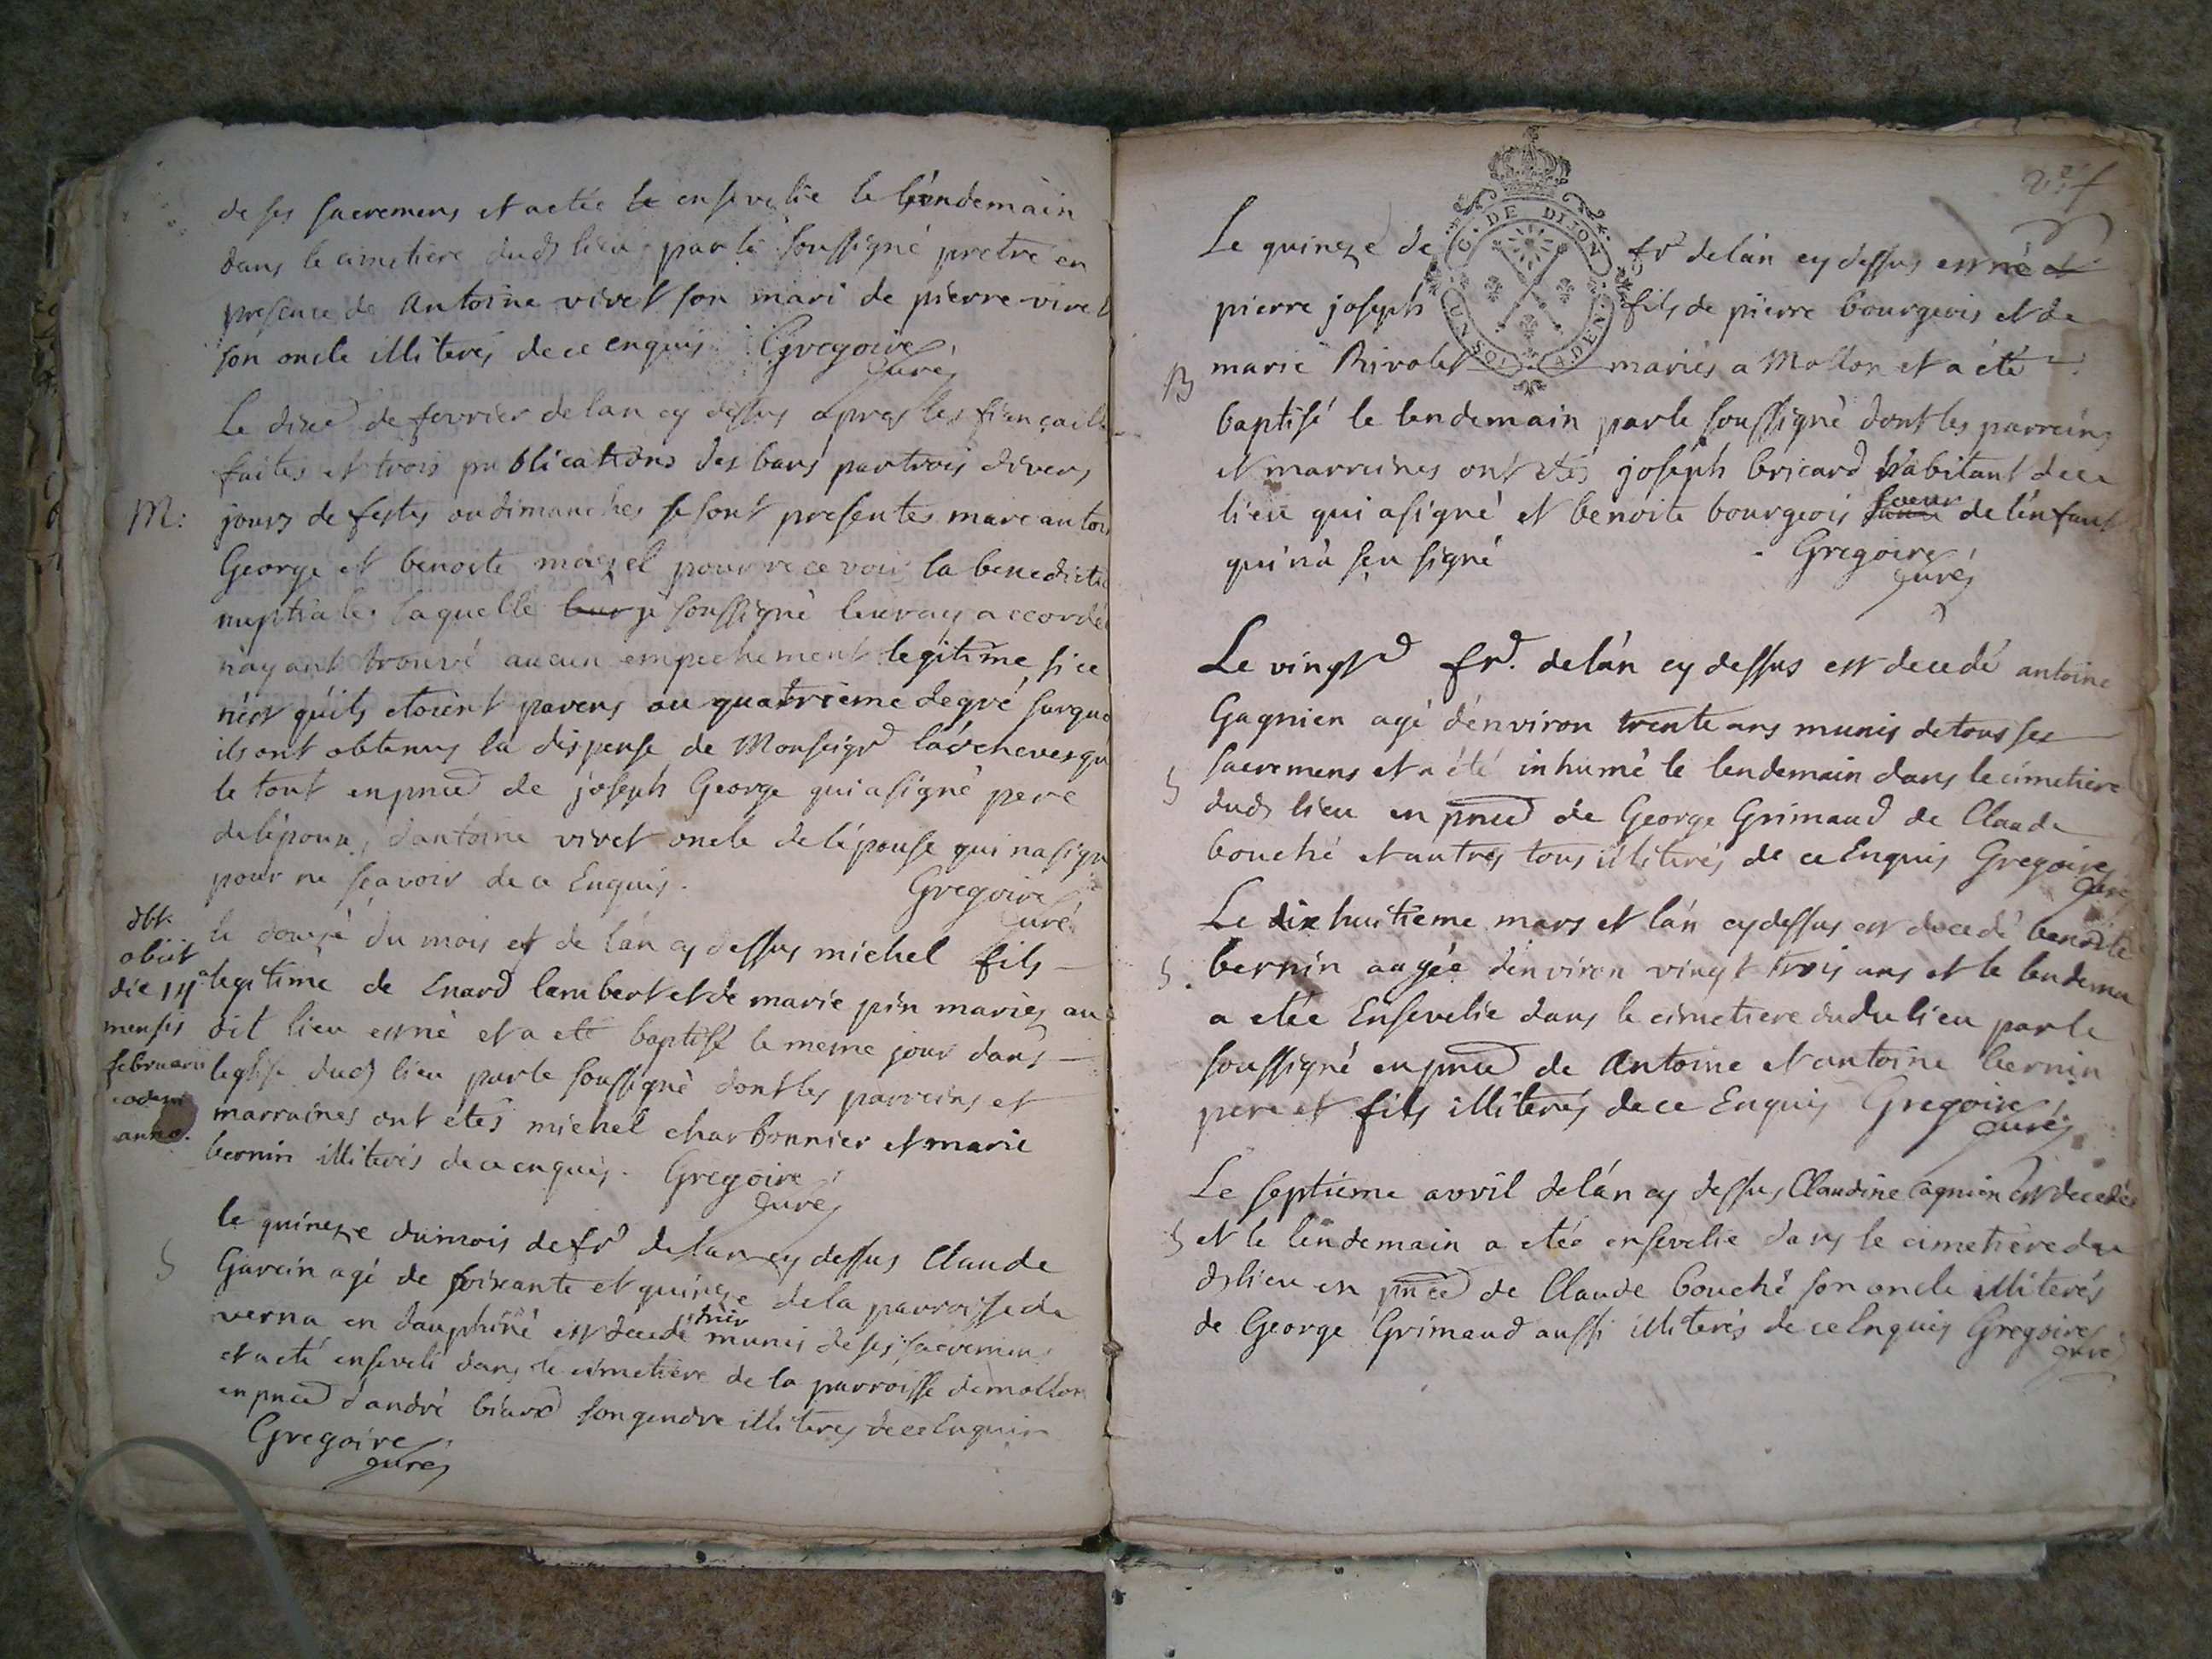 de ses sacremens et a etée ensevelie le lendemain
dans le cimetiere dud lieu par le soussigné pretre en
presence de Antoine vivet son mari de pierre vivet
son oncle illiterés de ce enquis Gregoire
curé
Le dixe de fevrier de lan cy dessus apres les fiençaill
faites et trois publications des bans par trois divers
M: jours de festes ou dimanches se sont presentes marc antoi
George et benoite pour recevoir la benedictio
nuptiale laquelle je soussigné leur ay accordé
nayant trouvé aucun empechement legitime, si ce
n'est qu'ils etoient parens au quatrieme degré surquo
ils ont obtenus la dispense de Monseigr l'archevesqu
le tout en pnce de joseph George qui a signé pere
de l'epoux, d'antoine vivet oncle de l'epouse qui na sign
pour ne sçavoir de ce Enquis.
Gregoire
curé
obiit
die 14a
mensis
februarii
eodem
anno.
le douzé du mois et de l'an cy dessus michel fils
legitime de Enard lambert et de marie pin mariés au
dit lieu est né et a eté baptisé le meme jour dans
leglise dud lieu par le soussigné dont les parreins et
marraines ont étés michel charbonnier et marie
bernin illiterés de ce enquis. Gregoire
curé
le quinzze du mois de fr de lan cy dessus Claude
S Garcin agé de soixante et quinze de la parroisse de
verna en dauphiné est decedé hier munis de ses sacremens
et a eté enseveli dans le cimetiere de la parroisse de mollon
en pnce d'andré biard son gendre illiteres de ce Enquis
Gregoire
curé
C. DE DIJON
Le quinzze de fr de l'an cy dessus est né
pierre joseph fils de pierre bourgeois et de
B marie Rivolet mariés a Mollon et a été
baptisé le lendemain par le soussigné dont les parreins
et marreines ont etés joseph bricard habitant de ce
lieu qui a signé et benoite bourgeois soeur de l'enfant
qui n'a sçu signé Gregoire
curé
Le vingt fr. de l'an cy dessus est decedé antoine
Gagnien agé d'environ trente ans munis de tous ses
S sacremens et a été inhumé le lendemain dans le cimetiere
dud lieu en pnce de George Grimaud de Claude
bouché et autres tous illiterés de ce Enquis Gregoire
curé
Le dix huitieme mars et l'an cy dessus est decedé benoite
S. bernin aagée d'environ vingt trois ans et le lendemain
a etée Ensevelie dans le cimetiere dudu lieu par le
soussigné en pnce de Antoine et antoine bernin
pere et fils illiterés de ce Enquis Gregoire
curé
Le septieme avril de l'an cy dessus Claudine Cagnien est decedée
S et le lendemain a etée ensevelie dans le cimetiere du
d lieu en pnce de Claude bouché son oncle illiterés
de George Grimaud aussi illiterés de ce Enquis Gregoire
curé